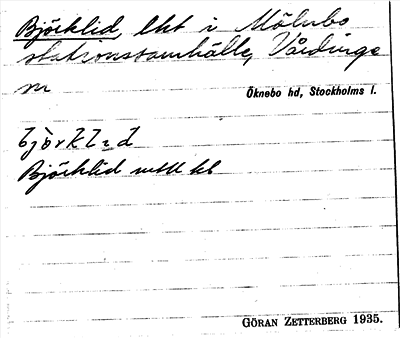 Björklid, lht i Mölnbo
stationssamhälle, Vårdinge
sn
Öknebo hd, Stockholms l.
björklid
Björklid
GÖRAN ZETTERBERG 1935.